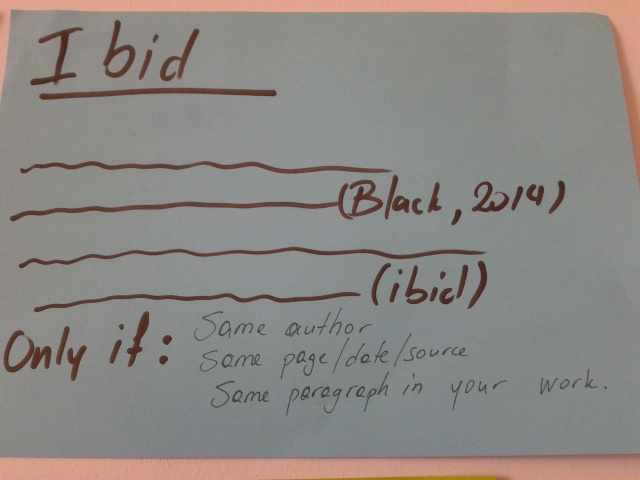 I bid
(Black, 2014)
(ibid)
Only if: Same author
Same page/date/source
Same paragraph in your work.